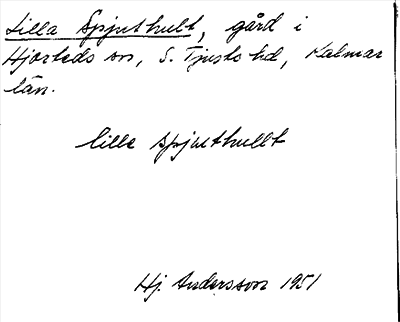 Lilla Spjuthult, gård i
Hjorteds sn, S. Tjusts hd, Kalmar
län.
lille spjuthullt
Hj. Andersson 1951